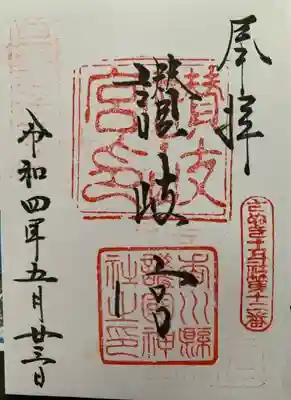 奉拝
さぬき十五社第十二番
讃岐宮
香川縣護國神社之印
令和四年五月廿三日